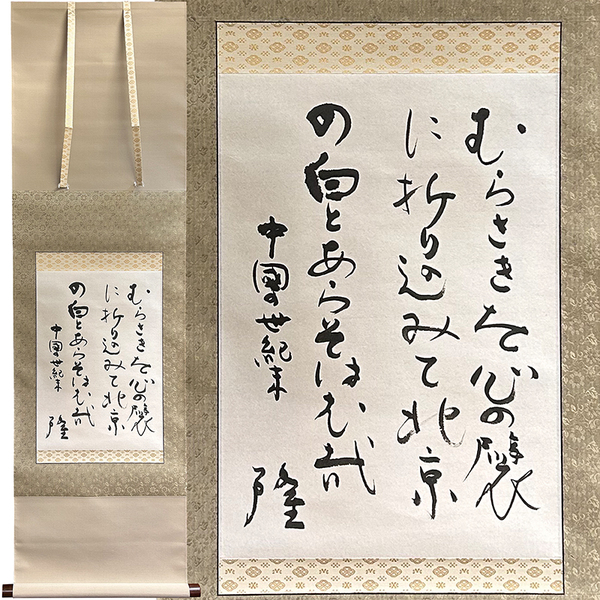 むらさきを心の襞
に折り込みて北京
の白とあらそはむ哉
中國の世紀末
隆